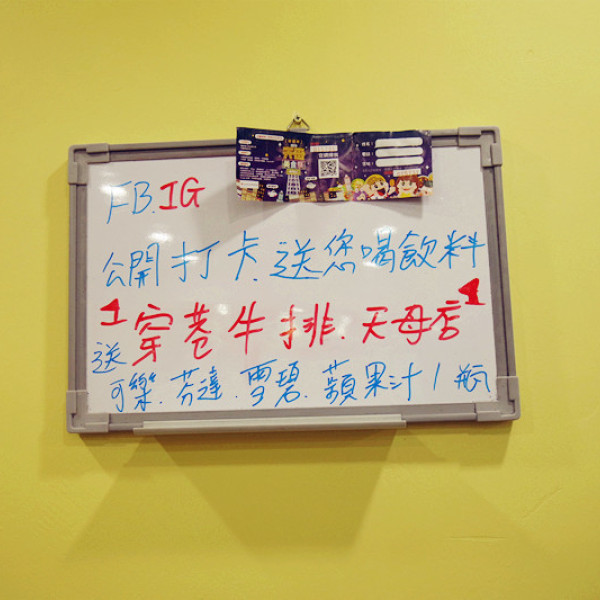 FB.IG
公開打卡.送您喝飲料
穿巷牛排.天母店
送
可樂.芬達.雪碧.蘋果汁1瓶